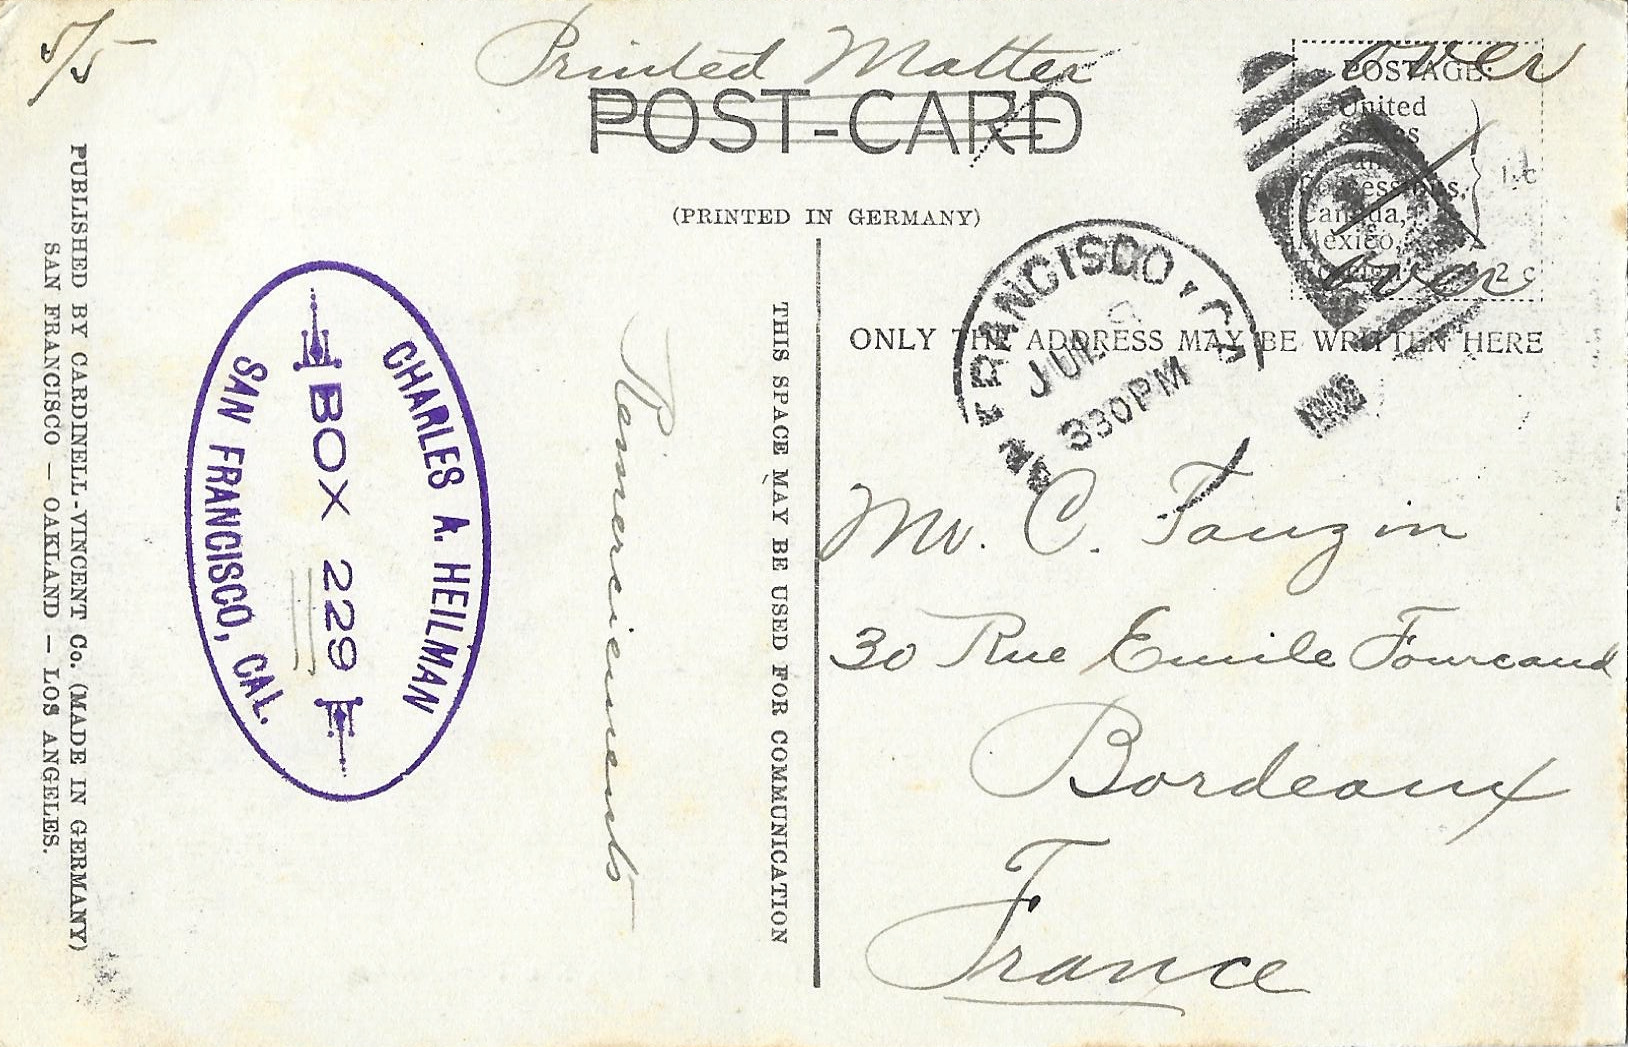 5/5
Printed Matter
POST-CARD
(PRINTED IN GERMANY)
over
POSTAGE:
United
States
and
Possessions,
Canada,
Mexico,
1 c
2 c
over
FRANCISCO, CA
JUL
330 PM
ONLY THE ADDRESS MAY BE WRITTEN HERE
Mr. C. Fauzin
30 Rue Emile Fourcand
Bordeaux
France
THIS SPACE MAY BE USED FOR COMMUNICATION
Remerciements
CHARLES A. HEILMAN
BOX 229
SAN FRANCISCO, CAL.
PUBLISHED BY CARDINELL-VINCENT Co. (MADE IN GERMANY)
SAN FRANCISCO — OAKLAND — LOS ANGELES.